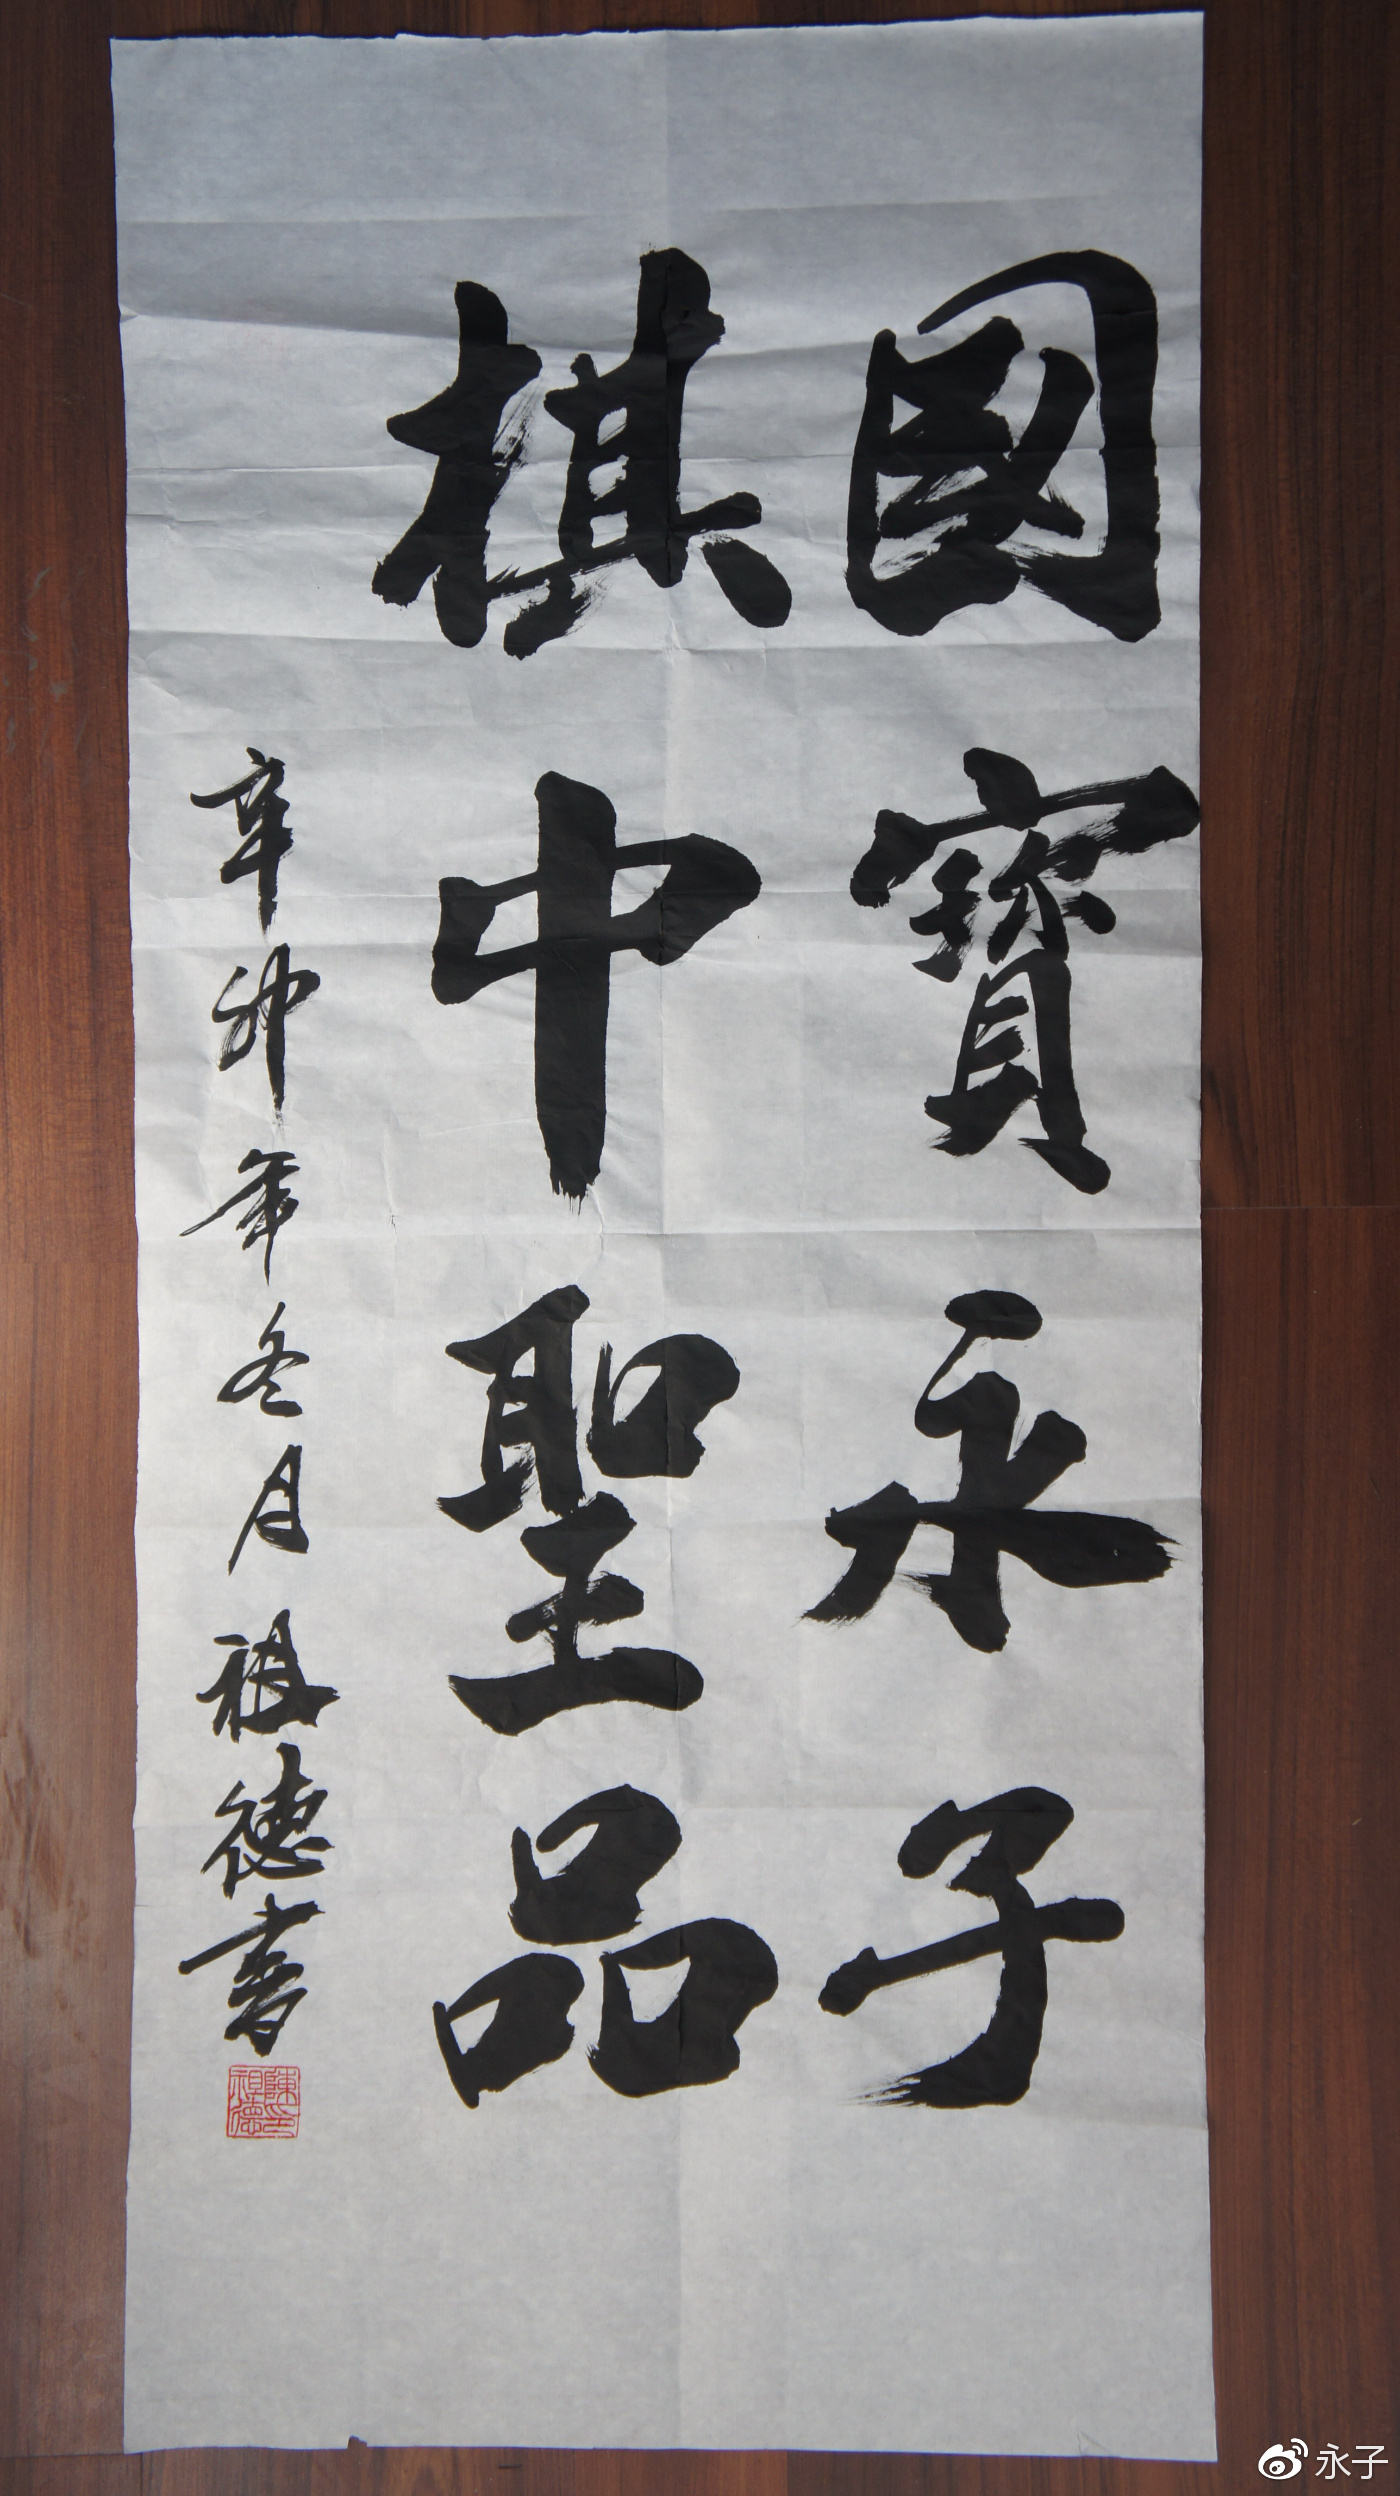 國寳永子
棋中聖品
辛卯年冬月祖德書
陳祖德印
永子